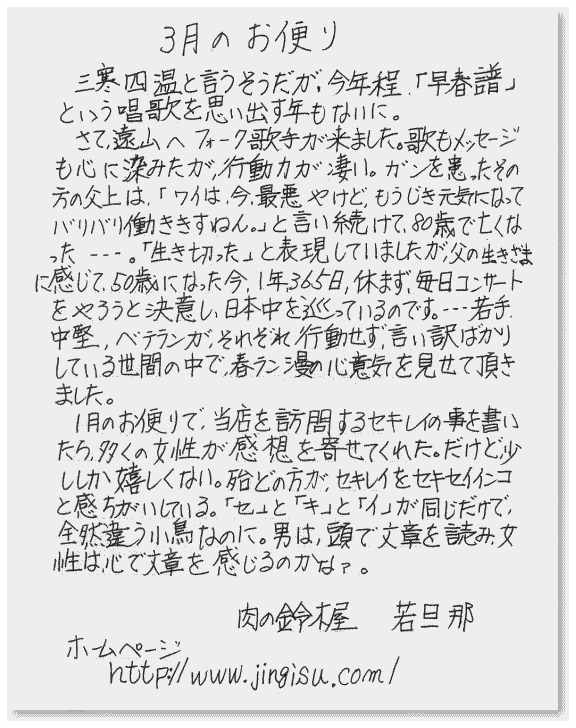 3月のお便り
三寒四温と言うそうだが、今年程、「早春譜」
という唱歌を思い出す年もないに。
さて、遠山へ フォーク歌手が来ました。歌もメッセージ
も心に染みたが、行動力が凄い。ガンを患ったその
方の父上は、「ワイは、今、最悪やけど、もうじき元気になって
バリバリ働ききすねん。」と言い続けて、80歳で亡くな
った ---。「生き切った」と表現していましたが、父の生きざま
に感じて、50歳になった今、1年、365日、休まず、毎日コンサート
をやろうと決意し、日本中を巡っているのです。---若手、
中堅、ベテランが、それぞれ、行動せず、言い訳ばかり
している世間の中で、春ラン漫の心意気を見せて頂き
ました。
1月のお便りで、当店を訪問するセキレイの事を書い
たら、多くの女性が感想を寄せてくれた。だけど、少
ししか嬉しくない。殆どの方が、セキレイをセキセイインコ
と感ちがいしている。「セ」と「キ」と「イ」が同じだけで、
全然違う小鳥なのに。男は、頭で文章を読み、女
性は、心で文章を感じるのかな?。
肉の鈴木屋 若旦那
ホームページ
http://www.jingisu.com/